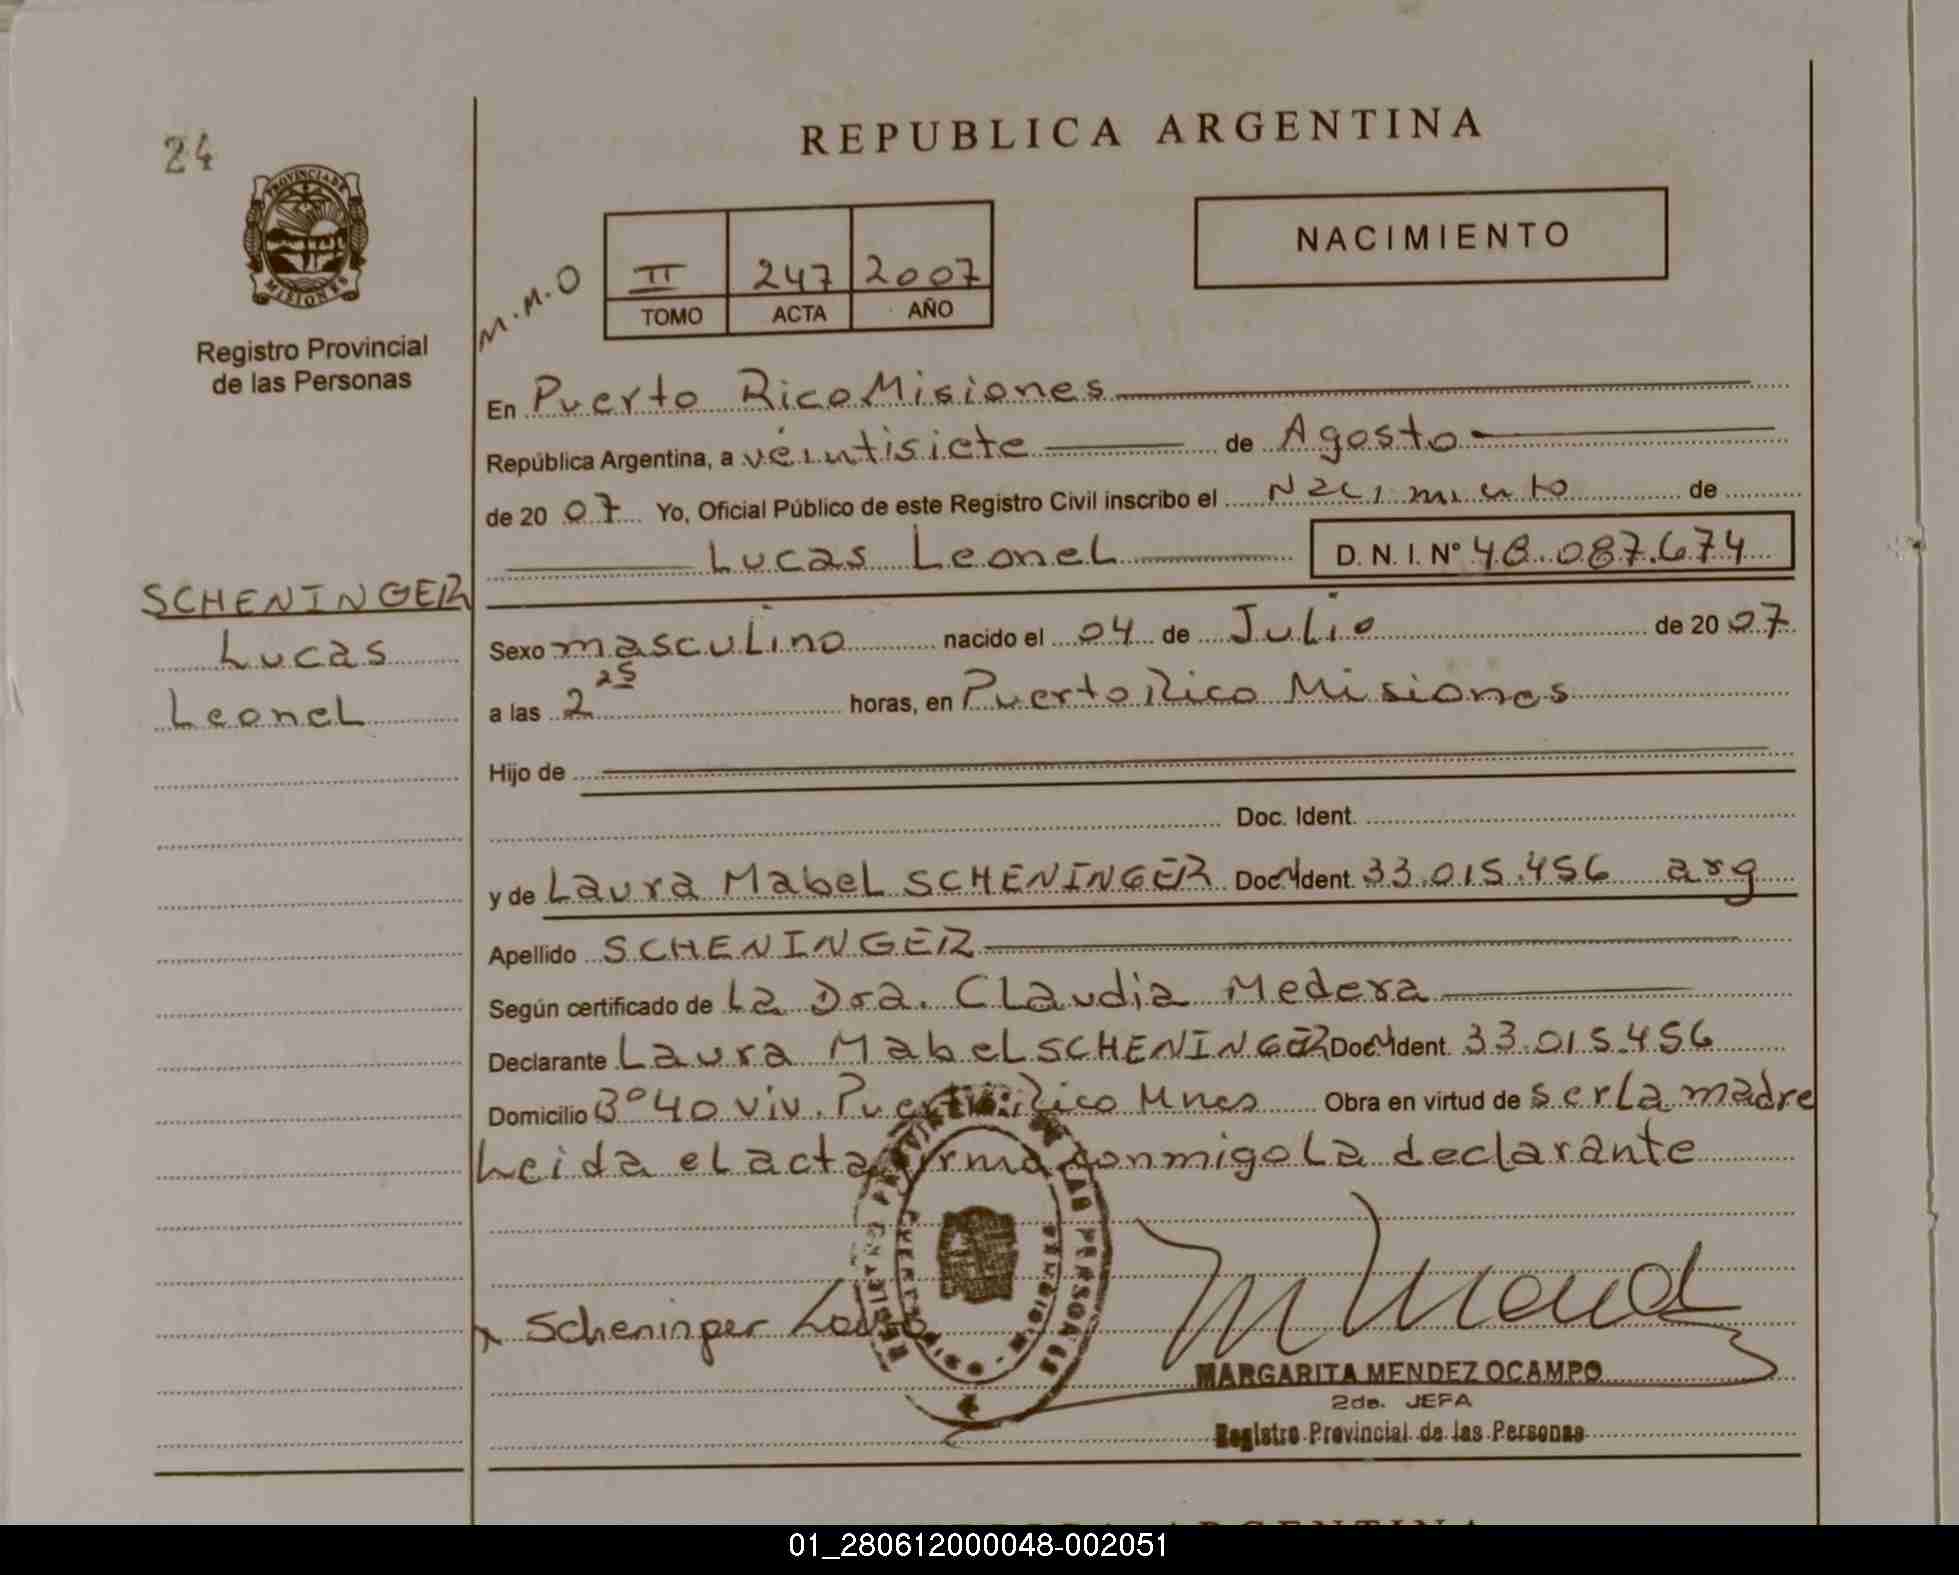 24
REPUBLICA ARGENTINA
PROVINCIA DE MISIONES
Registro Provincial
de las Personas
NACIMIENTO
M.M.O
II 247 2007
TOMO ACTA AÑO
En Puerto Rico Misiones
República Argentina, a veintisiete de Agosto
de 2007 Yo, Oficial Público de este Registro Civil inscribo el Nacimiento de
Lucas Leonel D. N. I. N° 48.087.674
SCHENINGER
Lucas
Leonel
Sexo masculino nacido el 04 de Julio de 2007
a las 2 25 horas, en Puerto Rico Misiones
Hijo de
Doc. Ident.
y de Laura Mabel SCHENINGER Doc. Ident. 33.015.456 arg
Apellido SCHENINGER
Según certificado de La Dra. Claudia Medera
Declarante Laura Mabel SCHENINGER Doc. Ident. 33.015.456
Domicilio B° 40 viv. Puerto Rico Mnes Obra en virtud de ser la madre
Leida el acta firma conmigo la declarante
x Scheninger
MARGARITA MENDEZ OCAMPO
2da. JEFA
Registro Provincial de las Personas
REGISTRO PROVINCIAL DE LAS PERSONAS
01_280612000048-002051